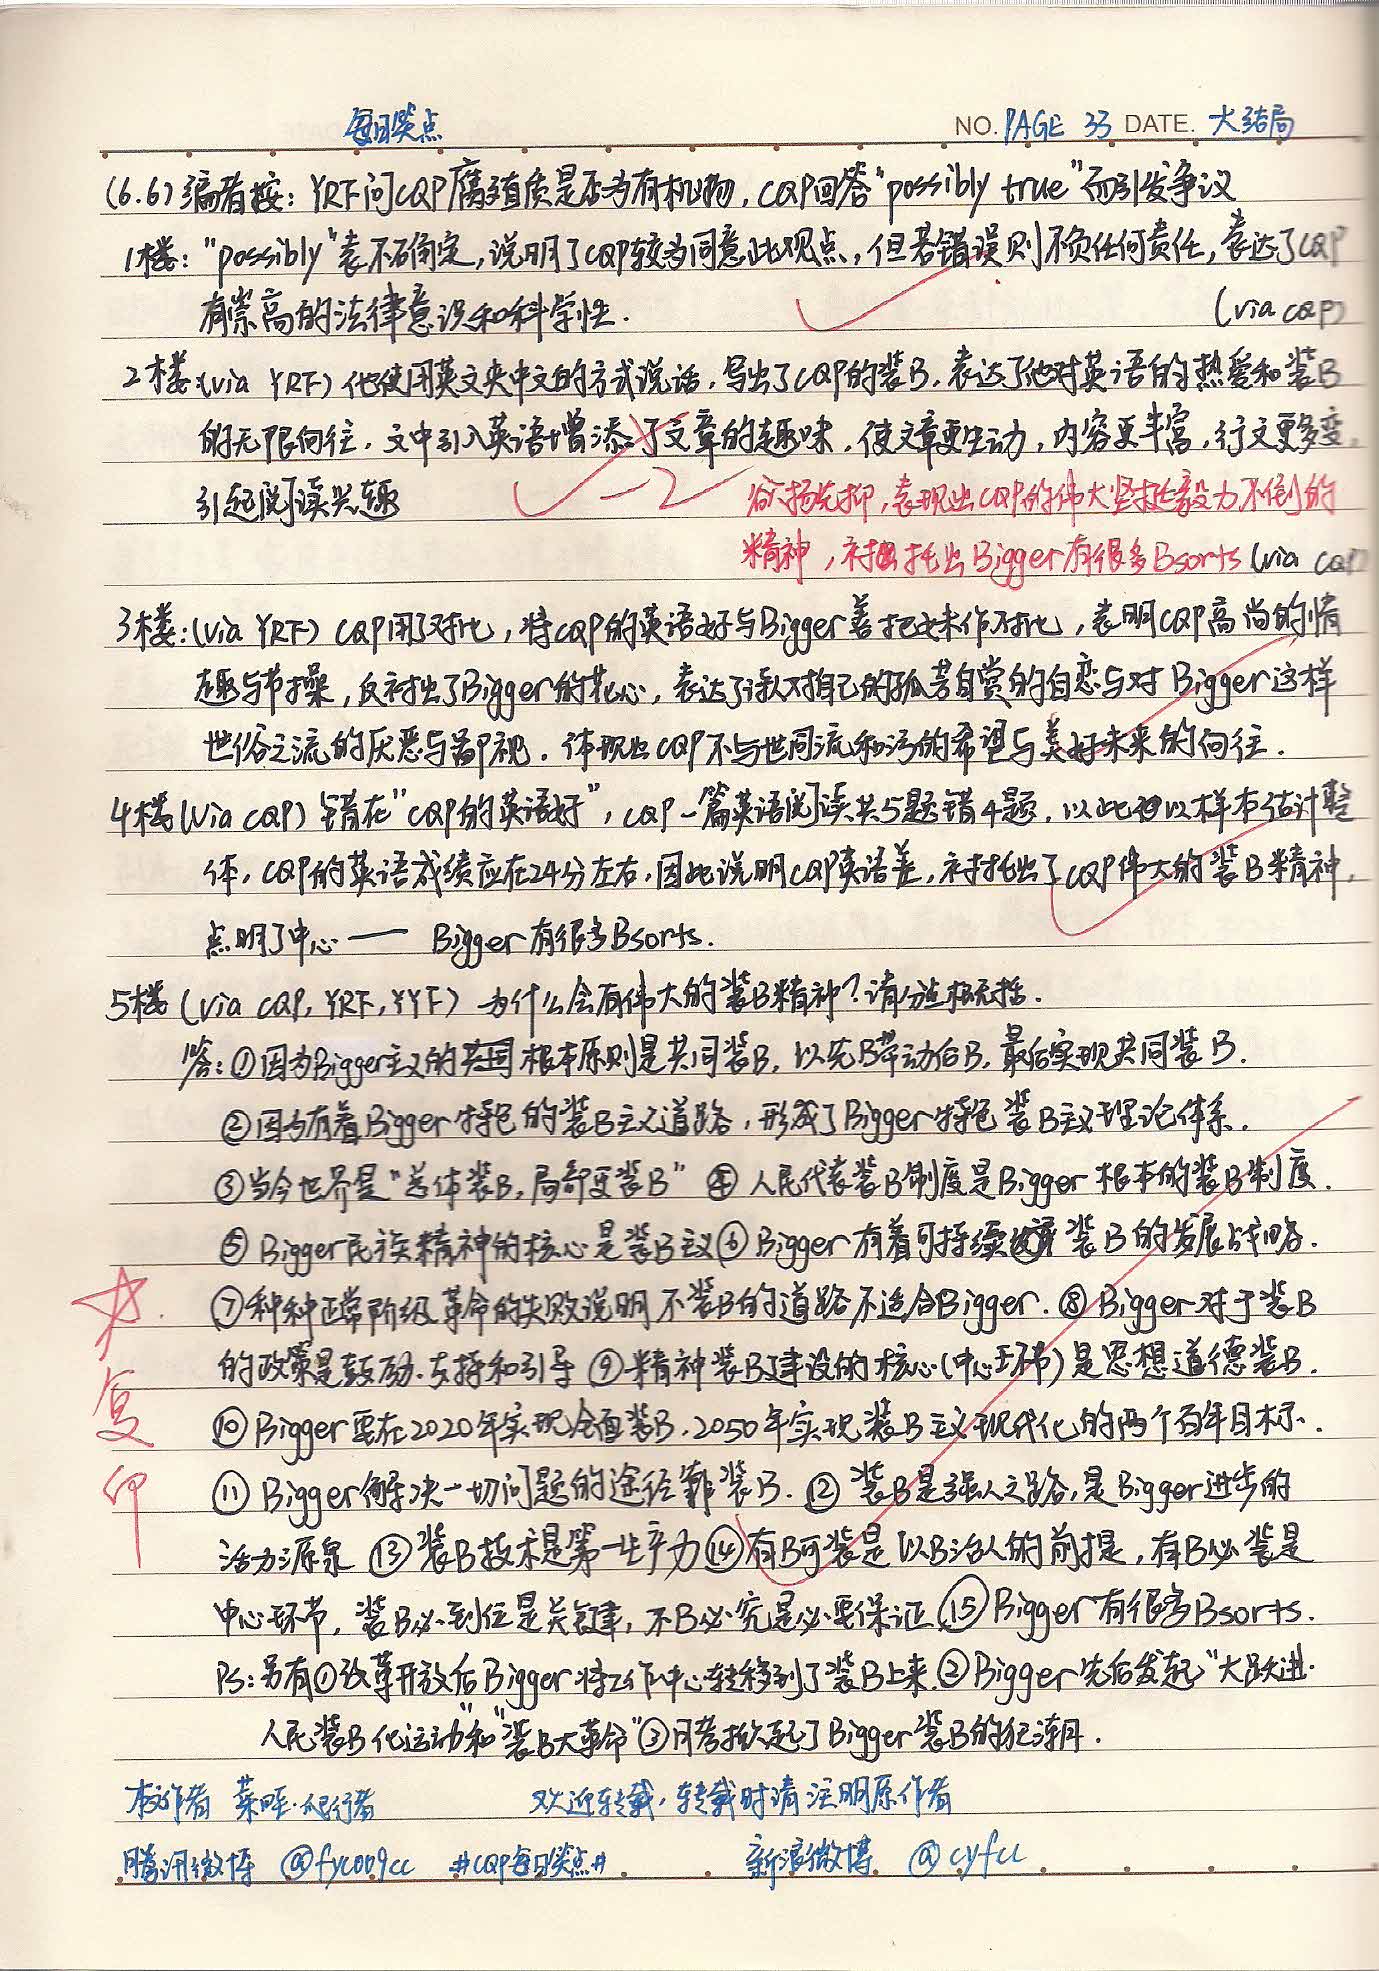 每日笑点
NO. PAGE 33 DATE. 大结局
(6.6)编者按：YRF问CQP腐殖质是否为有机物，CQP回答“possibly true”而引发争议
1楼：“possibly”表不确定，说明了CQP较为同意此观点，但若错误则不负任何责任，表达了CQP
有崇高的法律意识和科学性．
(via CQP)
2楼：(via YRF) 他使用英文夹中文的方式说话，写出了CQP的装B，表达了他对英语的热爱和装B
的无限向往．文中引入英语增添了文章的趣味，使文章更生动，内容更丰富，行文更多变，
引起阅读兴趣
-2
欲扬先抑，表现出CQP的伟大坚挺毅力不倒的
精神，衬托出Bigger有很多Bsorts (via CQP)
3楼：(via YRF) CQP用了对比，将CQP的英语好与Bigger善把妹作对比，表明CQP高尚的情
趣与节操，反衬出了Bigger的花心，表达了诗人对自己的孤芳自赏的自恋与对Bigger这样
世俗之流的厌恶与鄙视．体现出CQP不与世同流和污的希望与美好未来的向往．
4楼(via CQP) 错在“CQP的英语好”，CQP一篇英语阅读共5题错4题，以此以样本估计整
体，CQP的英语成绩应在24分左右，因此说明CQP英语差，衬托出了CQP伟大的装B精神，
点明了中心—— Bigger有很多Bsorts．
5楼 (via CQP, YRF, YYF) 为什么会有伟大的装B精神？请分点概括．
答：①因为Bigger主义的根本原则是共同装B，以先B带动后B，最后实现共同装B．
②因为有着Bigger特色的装B主义道路，形成了Bigger特色装B主义理论体系．
③当今世界是“总体装B，局部更装B” ④人民代表装B制度是Bigger根本的装B制度．
⑤Bigger民族精神的核心是装B主义⑥Bigger有着可持续装B的发展战略．
⑦种种正常阶级革命的失败说明不装B的道路不适合Bigger．⑧Bigger对于装B
的政策是鼓励．支持和引导 ⑨精神装B建设的核心(中心环节)是思想道德装B．
⑩Bigger要在2020年实现全面装B，2050年实现装B主义现代化的两个百年目标．
⑪Bigger解决一切问题的途径靠装B．⑫装B是强人之路，是Bigger进步的
活力源泉 ⑬装B技术是第一生产力⑭有B可装是以B治人的前提，有B必装是
中心环节，装B必到位是关键，不B必究是必要保证⑮Bigger有很多Bsorts．
PS：另有①改革开放后Bigger将工作中心转移到了装B上来．②Bigger先后发起“大跃进．
人民装B化运动”和“装B大革命”③月考掀起了Bigger装B的狂潮．
☆
复
印
本文作者 菜畔·爬行者 欢迎转载，转载时请注明原作者
腾讯微博 @fyc009cc #CQP每日笑点# 新浪微博 @cyfcc